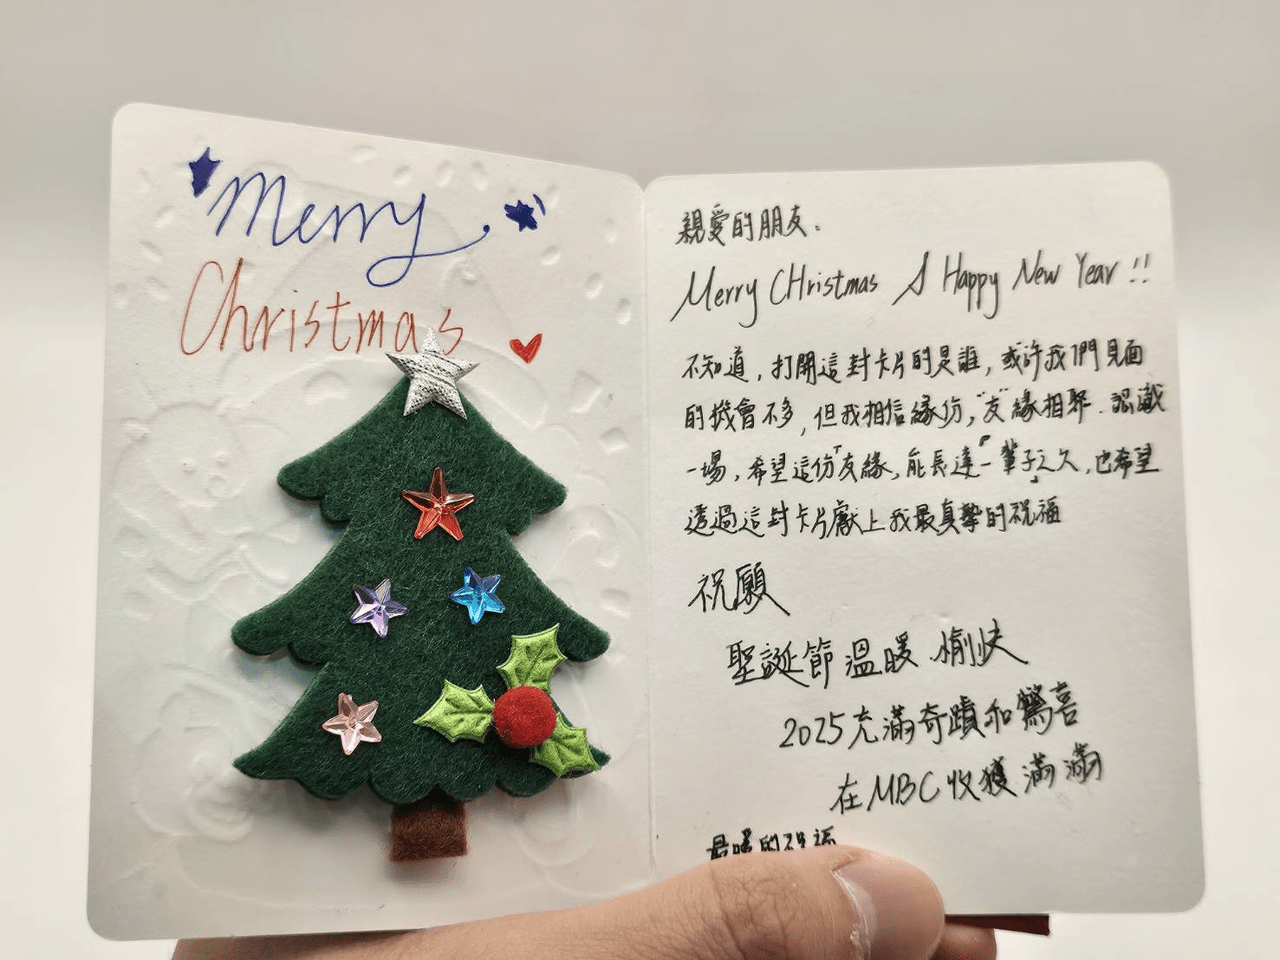 Merry
Christmas
親愛的朋友.
Merry CHristmas & Happy New Year !!
不知道，打開這封卡片的是誰，或許我們見面
的機會不多，但我相信緣份，"友"緣相聚．認識
一場，希望這份「友緣，能長達「一輩子」之久，也希望
透過這封卡片獻上我最真摯的祝福
祝願
聖誕節溫暖愉快
2025充滿奇蹟和驚喜
在MBC收獲滿滿
最暖的祝福